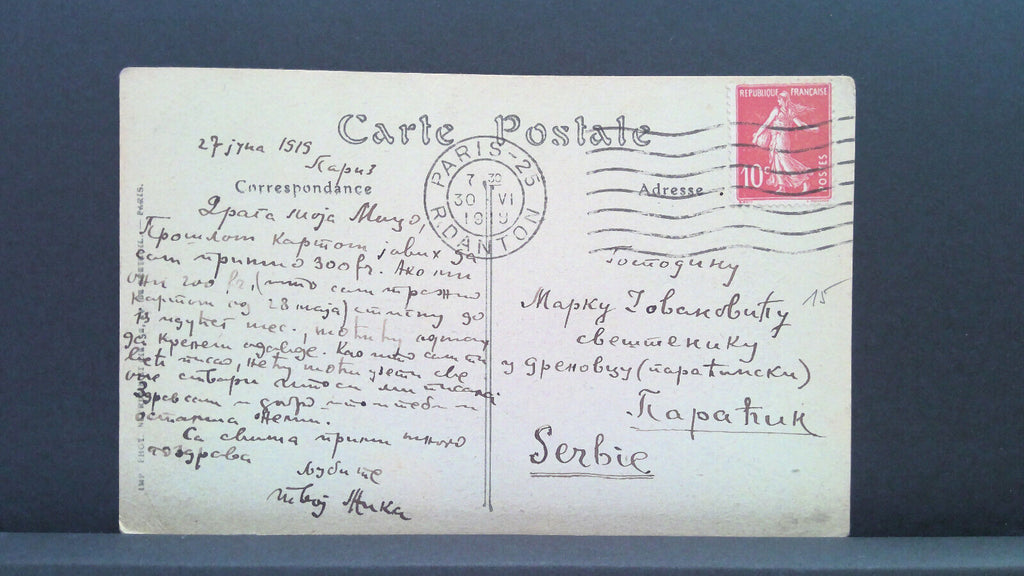 Carte Postale
27 јуна 1919
Париз
Correspondance
Драга моја Мицо,
Прошлом картом јавих да
сам примио 300 fr. Ако ми
они 200 fr. (што сам тражио
картом од 28 маја) стигну до
15 идућег мес., моћићу одмах
да кренем одавде. Као што сам ти
већ писао, нећу моћи узети све
оне ствари што си ми писала.
Здрав сам и добро што и теби и
осталима желим.
Са свима прими много
поздрава
Љуби те
твој Жика
PARIS-25
7 30
30 VI
R. DANTON
Adresse
REPUBLIQUE FRANÇAISE
10c
POSTES
Господину
Марку Јовановићу
свештенику
у Дреновцу (параћински)
Параћин
Serbie
15